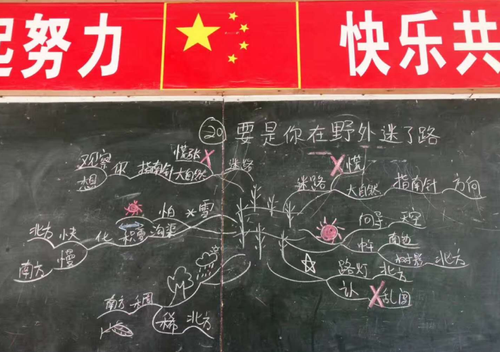 起努力
快乐共
20 要是你在野外迷了路
观察 你 指南针 慌张 迷路
想 大自然
迷路 慌
大自然 指南针 方向
北方 快 化 积雪 怕 雪
南方 慢 沟渠
向导 天空
忠 南边
树影 北方
南方 稠
稀 北方
路灯 北方
认 乱闯